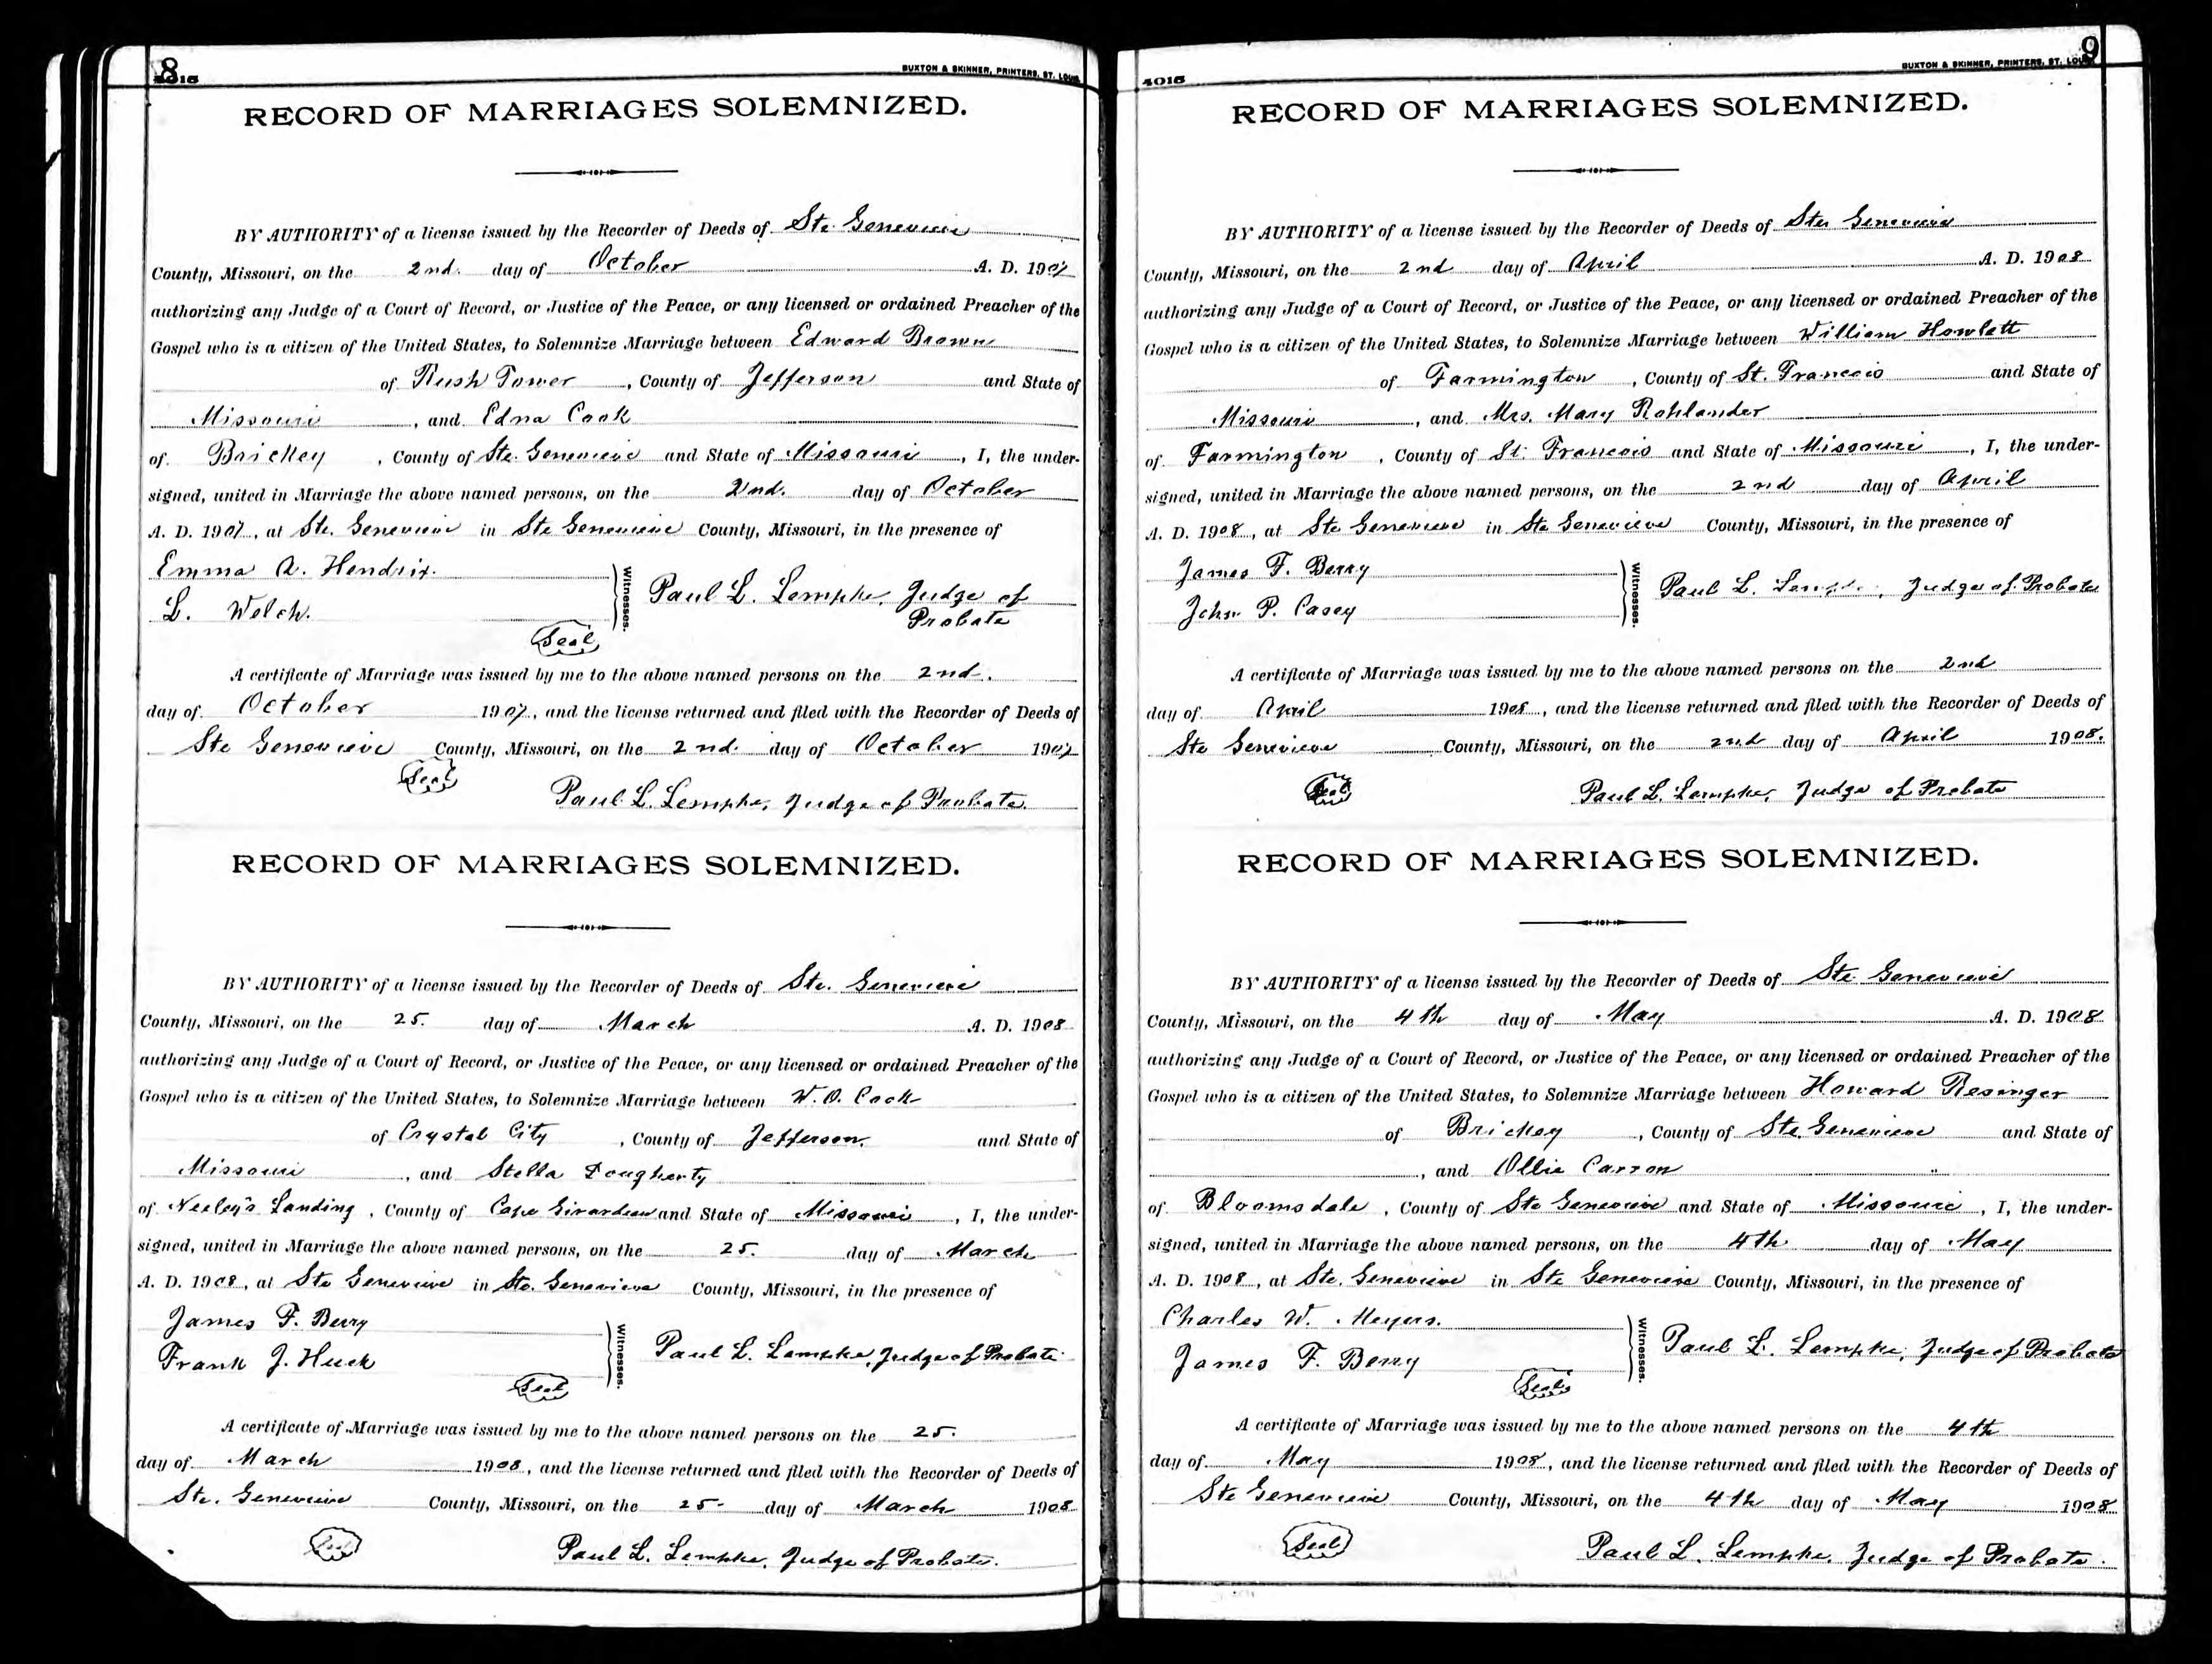 8
4015
BUXTON & SKINNER, PRINTERS, ST. LOUIS
RECORD OF MARRIAGES SOLEMNIZED.
BY AUTHORITY of a license issued by the Recorder of Deeds of Ste. Genevieve
County, Missouri, on the 2nd. day of October A. D. 1907
authorizing any Judge of a Court of Record, or Justice of the Peace, or any licensed or ordained Preacher of the
Gospel who is a citizen of the United States, to Solemnize Marriage between Edward Brown
of Rush Tower, County of Jefferson and State of
Missouri, and Edna Cook
of Brickey, County of Ste. Genevieve and State of Missouri, I, the under-
signed, united in Marriage the above named persons, on the 2nd. day of October
A. D. 1907, at Ste. Genevieve in Ste Genevieve County, Missouri, in the presence of
Emma A. Hendrix.
L. Welch.
Witnesses.
Paul L. Lempke, Judge of
Probate
Seal
A certificate of Marriage was issued by me to the above named persons on the 2nd.
day of October 1907, and the license returned and filed with the Recorder of Deeds of
Ste Genevieve County, Missouri, on the 2nd. day of October 1907
Seal
Paul L. Lempke, Judge of Probate
RECORD OF MARRIAGES SOLEMNIZED.
BY AUTHORITY of a license issued by the Recorder of Deeds of Ste. Genevieve
County, Missouri, on the 25. day of March A. D. 1908
authorizing any Judge of a Court of Record, or Justice of the Peace, or any licensed or ordained Preacher of the
Gospel who is a citizen of the United States, to Solemnize Marriage between W. O. Cook
of Crystal City, County of Jefferson. and State of
Missouri, and Stella Dougherty
of Neeley's Landing, County of Cape Girardeau and State of Missouri, I, the under-
signed, united in Marriage the above named persons, on the 25. day of March
A. D. 1908, at Ste Genevieve in Ste. Genevieve County, Missouri, in the presence of
James F. Berry
Frank J. Huck
Witnesses.
Paul L. Lempke, Judge of Probate
Seal
A certificate of Marriage was issued by me to the above named persons on the 25.
day of March 1908, and the license returned and filed with the Recorder of Deeds of
Ste. Genevieve County, Missouri, on the 25 day of March 1908
Seal
Paul L. Lempke, Judge of Probate.
9
4015
BUXTON & SKINNER, PRINTERS, ST. LOUIS
RECORD OF MARRIAGES SOLEMNIZED.
BY AUTHORITY of a license issued by the Recorder of Deeds of Ste. Genevieve
County, Missouri, on the 2nd day of April A. D. 1908
authorizing any Judge of a Court of Record, or Justice of the Peace, or any licensed or ordained Preacher of the
Gospel who is a citizen of the United States, to Solemnize Marriage between William Howlett
of Farmington, County of St. Francois and State of
Missouri, and Mrs. Mary Rohlander
of Farmington, County of St. Francois and State of Missouri, I, the under-
signed, united in Marriage the above named persons, on the 2nd day of April
A. D. 1908, at Ste Genevieve in Ste Genevieve County, Missouri, in the presence of
James F. Berry
John P. Casey
Witnesses.
Paul L. Lempke, Judge of Probate
A certificate of Marriage was issued by me to the above named persons on the 2nd
day of April 1908, and the license returned and filed with the Recorder of Deeds of
Ste Genevieve County, Missouri, on the 2nd day of April 1908.
Seal
Paul L. Lempke, Judge of Probate
RECORD OF MARRIAGES SOLEMNIZED.
BY AUTHORITY of a license issued by the Recorder of Deeds of Ste. Genevieve
County, Missouri, on the 4th day of May A. D. 1908
authorizing any Judge of a Court of Record, or Justice of the Peace, or any licensed or ordained Preacher of the
Gospel who is a citizen of the United States, to Solemnize Marriage between Howard Resinger
of Brickey, County of Ste. Genevieve and State of
, and Ollie Carron
of Bloomsdale, County of Ste Genevieve and State of Missouri, I, the under-
signed, united in Marriage the above named persons, on the 4th day of May
A. D. 1908, at Ste. Genevieve in Ste Genevieve County, Missouri, in the presence of
Charles W. Meyers.
James F. Berry
Witnesses.
Paul L. Lempke, Judge of Probate
Seal
A certificate of Marriage was issued by me to the above named persons on the 4th
day of May 1908, and the license returned and filed with the Recorder of Deeds of
Ste Genevieve County, Missouri, on the 4th day of May 1908
Seal
Paul L. Lempke, Judge of Probate.